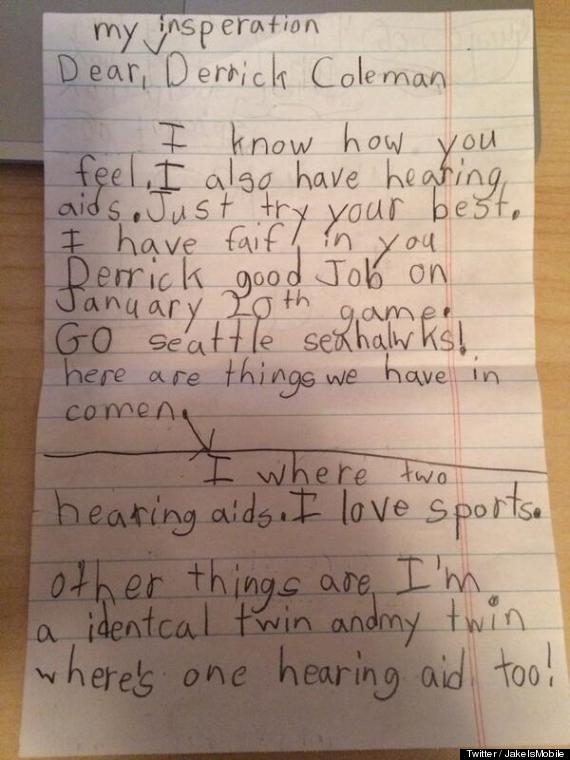 my insperation
Dear, Derrick Coleman
I know how you
feel. I also have hearing
aids. Just try your best.
I have faif in you
Derrick good Job on
January 20th game.
GO seattle seahalwks!
here are things we have in
comen.
I where two
hearing aids. I love sports.
other things are, I'm
a identcal twin andmy twin
where's one hearing aid too!
Twitter / JakeIsMobile